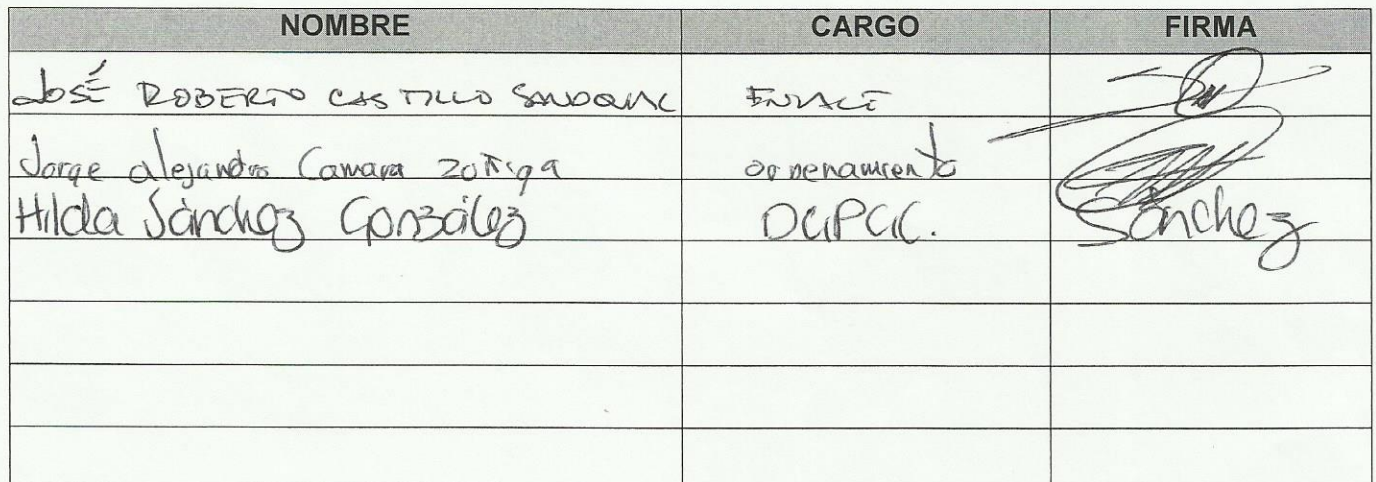 NOMBRE CARGO FIRMA
JOSÉ ROBERTO CASTILLO SANDOVAL ENLACE
Jorge Alejandro Camara Zoñiga ordenamiento
Hilda Sánchez González DGPGC. Sánchez